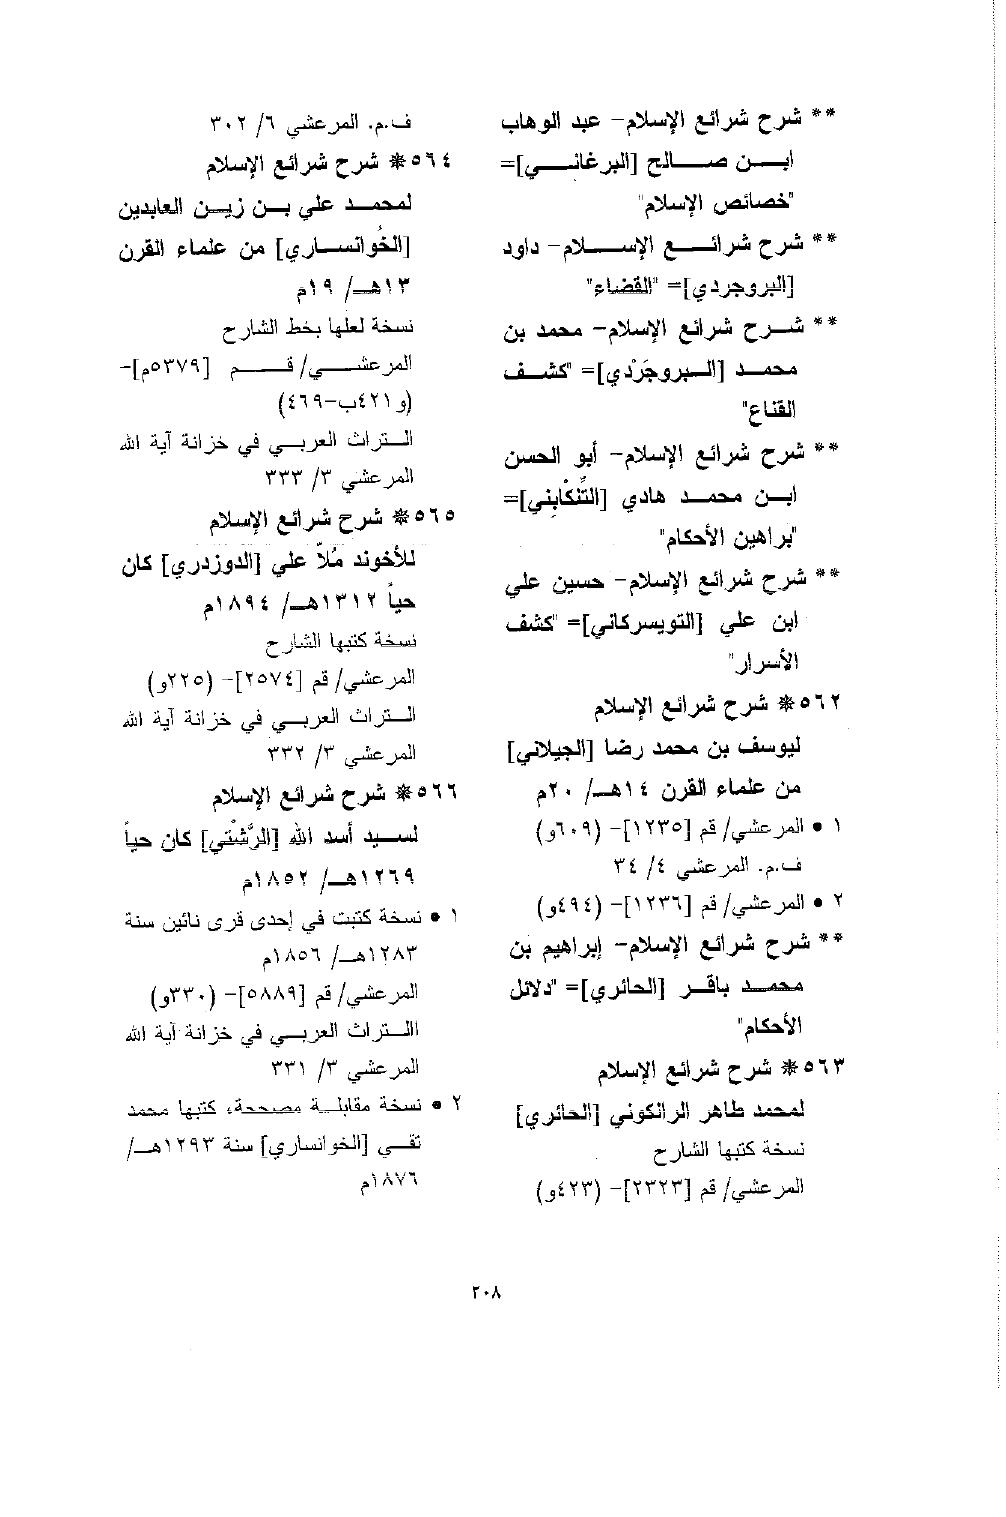 ** شرح شرائع الإسلام- عبد الوهاب
ابن صالح [البرغاني]=
"خصائص الإسلام"
** شرح شرائع الإسلام- داود
[البروجردي]= "القضاء"
** شرح شرائع الإسلام- محمد بن
محمد [البروجَرْدي]= "كشف
القناع"
** شرح شرائع الإسلام- أبو الحسن
ابن محمد هادي [التُّنْكابِني]=
"براهين الأحكام"
** شرح شرائع الإسلام- حسين علي
ابن علي [التويسركاني]= "كشف
الأسرار"
٥٦٢* شرح شرائع الإسلام
ليوسف بن محمد رضا [الجيلاني]
من علماء القرن ١٤هـ/ ٢٠م
١ • المرعشي/ قم [١٢٣٥]- (٦٠٩و)
ف.م. المرعشي ٤/ ٣٤
٢ • المرعشي/ قم [١٢٣٦]- (٤٩٤و)
** شرح شرائع الإسلام- إبراهيم بن
محمد باقر [الحائري]= "دلائل
الأحكام"
٥٦٣* شرح شرائع الإسلام
لمحمد طاهر الرانكوني [الحائري]
نسخة كتبها الشارح
المرعشي/ قم [٢٣٢٣]- (٤٢٣و)
ف.م. المرعشي ٦/ ٣٠٢
٥٦٤* شرح شرائع الإسلام
لمحمد علي بن زين العابدين
[الخُوانساري] من علماء القرن
١٣هـ/ ١٩م
نسخة لعلها بخط الشارح
المرعشي/ قم [٥٣٧٩م]-
(و٤٢١ب-٤٦٩)
التراث العربي في خزانة آية الله
المرعشي ٣/ ٣٣٣
٥٦٥* شرح شرائع الإسلام
للأخوند مُلاّ علي [الدوزدري] كان
حياً ١٣١٢هـ/ ١٨٩٤م
نسخة كتبها الشارح
المرعشي/ قم [٢٥٧٤]- (٢٢٥و)
التراث العربي في خزانة آية الله
المرعشي ٣/ ٣٣٢
٥٦٦* شرح شرائع الإسلام
لسيد أسد الله [الرَّشْتي] كان حياً
١٢٦٩هـ/ ١٨٥٢م
١ • نسخة كتبت في إحدى قرى نائين سنة
١٢٨٣هـ/ ١٨٥٦م
المرعشي/ قم [٥٨٨٩]- (٣٣٠و)
االتراث العربي في خزانة آية الله
المرعشي ٣/ ٣٣١
٢ • نسخة مقابلة مصححة، كتبها محمد
تقي [الخوانساري] سنة ١٢٩٣هـ/
١٨٧٦م
٢٠٨